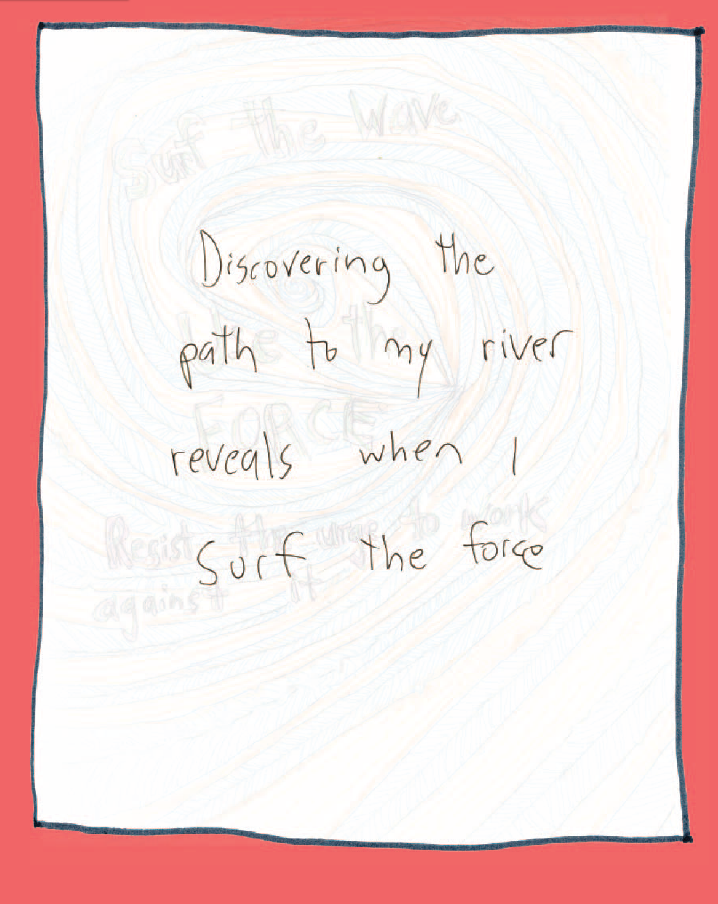 Surf the Wave
Discovering the
path to my river
Use the
FORCE
reveals when I
Resist the urge to work
surf the force
against it